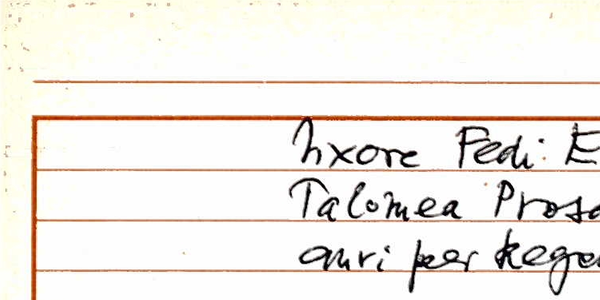 hxore Fedi: E
Talomea Prosa
auri per Rege